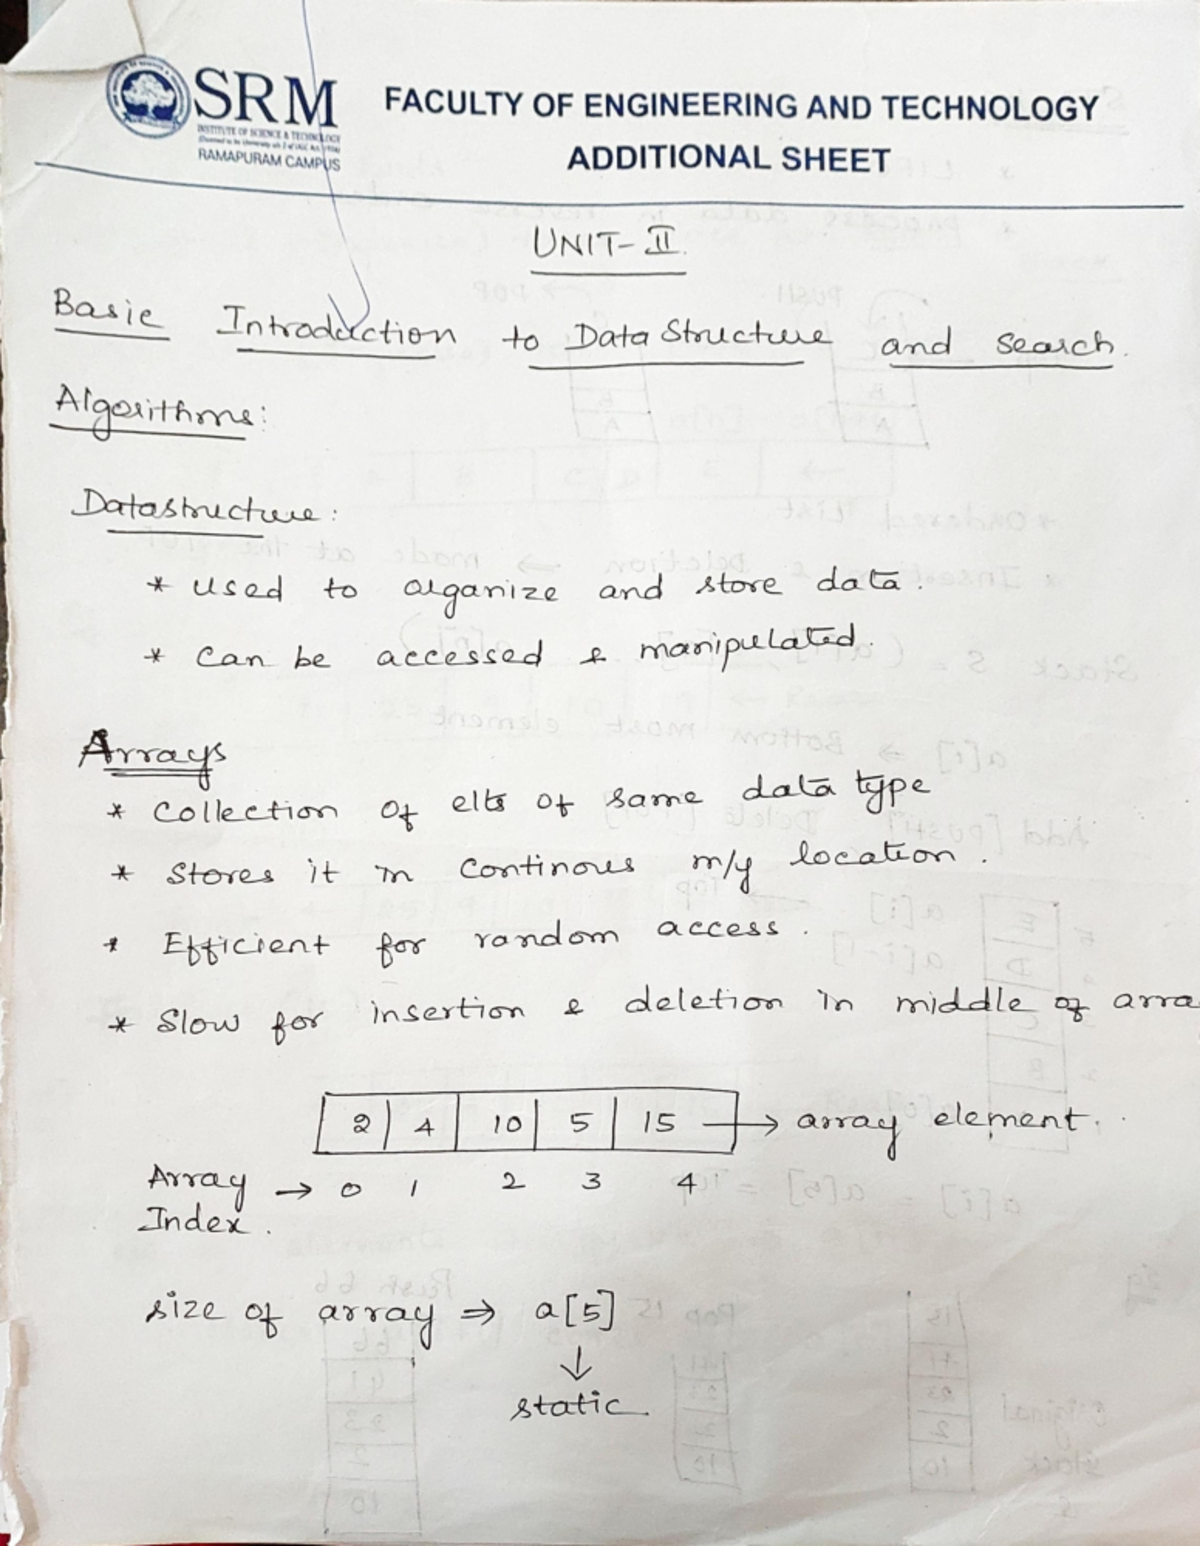 SRM
INSTITUTE OF SCIENCE & TECHNOLOGY
RAMAPURAM CAMPUS
FACULTY OF ENGINEERING AND TECHNOLOGY
ADDITIONAL SHEET
UNIT-II
Basic Introduction to Data Structure and search.
Algorithms:
Datastructure:
* used to organize and store data.
* can be accessed & manipulated.
Arrays
* Collection of elts of same data type
* Stores it in continous m/y location.
* Efficient for random access.
* Slow for insertion & deletion in middle of arra
2 4 10 5 15 → array element.
Array → 0 1 2 3 4
Index.
size of array ⇒ a[5]
↓
static.